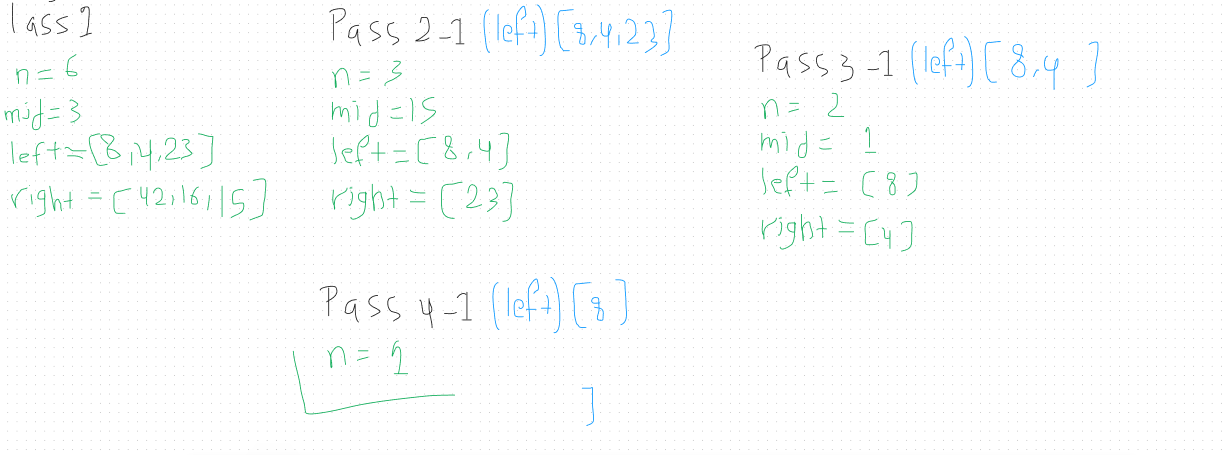 Pass 1
n = 6
mid = 3
left = [8,4,23]
right = [42,16,15]
Pass 2-1 (left) [8,4,23]
n = 3
mid = 15
left = [8,4]
right = [23]
Pass 3-1 (left) [8,4 ]
n = 2
mid = 1
left = [8]
right = [4]
Pass 4-1 (left) [8]
n = 1
]